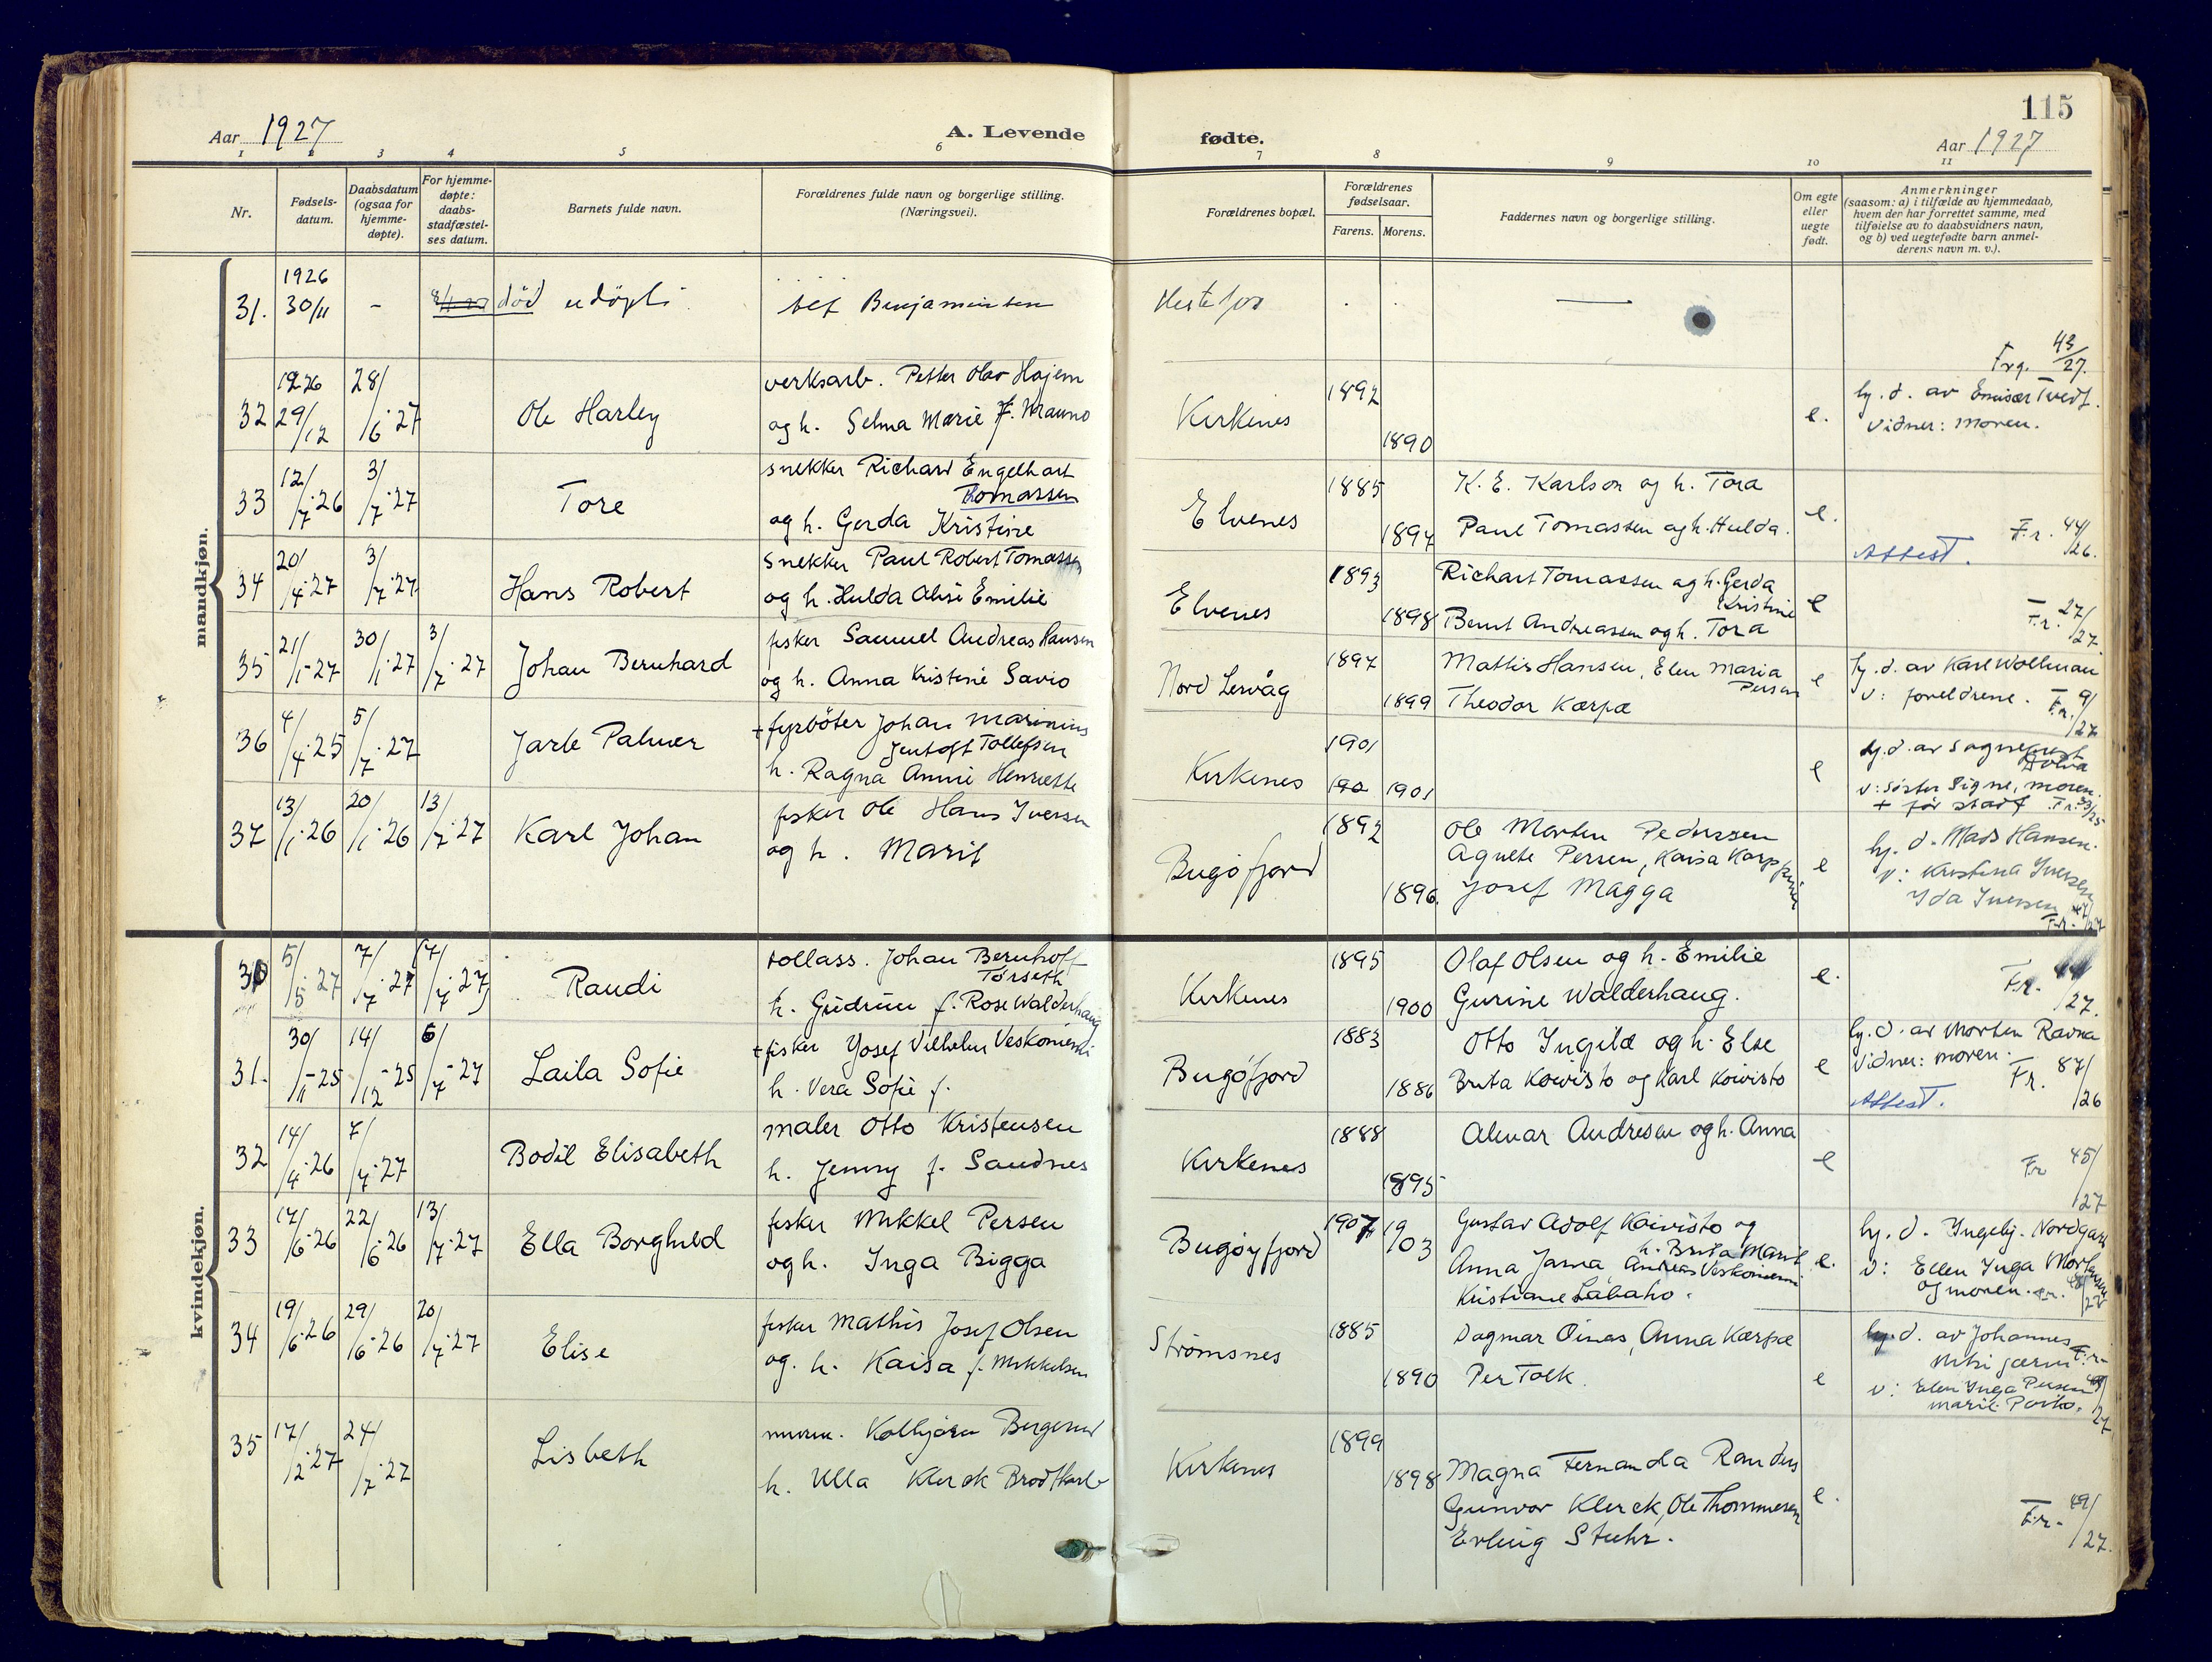 115
Aar 1927
A. Levende
fødte.
Aar 1927
1 2 3 4 5 6 7 8 9 10 11
Nr.
Fødsels-
datum.
Daabsdatum
(ogsaa for
hjemme-
døpte).
For hjemme-
døpte:
daabs-
stadfæstel-
ses datum.
Barnets fulde navn.
Forældrenes fulde navn og borgerlige stilling.
(Næringsvei).
Forældrenes bopæl.
Forældrenes
fødselsaar.
Farens. Morens.
Faddernes navn og borgerlige stilling.
Om egte
eller
uegte
født.
Anmerkninger
(saasom: a) i tilfælde av hjemmedaab,
hvem der har forrettet samme, med
tilføielse av to daabsvidners navn,
og b) ved uegtefødte barn anmel-
derens navn m. v.).
mandkjøn.
31. 1926 30/11 - død udöpt Benjaminsen
32 1926 29/12 28/6 27 Ole Harley
verksarb. Petter Olav Hojem
og h. Selma Marie f.
Kirkenes 1892 1890 e.
Frg. 43/27.
hj. d. av Emisær Tvedt.
Vidner: moren.
33 12/7 26 3/7 27 Tore
snekker Richard Engelhart
Tomassen
og h. Gerda Kristine
Elvenes 1885 1897
K. E. Karlson og h. Tora
Paul Tomassen og h. Hulda.
e.
Attest. Fr. 44/26.
34 20/4 27 3/7 27 Hans Robert
snekker Paul Robert Tomassen
og h. Hulda Alise Emilie
Elvenes 1893 1898
Richart Tomassen og h. Gerda
Kristine
Bernt Andreassen og h. Tora
e
Fr. 27/27.
35 21/1-27 30/1 27 3/7 27 Johan Bernhard
fisker Samuel Andreas Hansen
og h. Anna Kristine Savio
Nord Lervåg 1897 1899
Mathis Hansen, Elen Maria
Persen
Theodor Karpæ
e
hj. d. av Karl Wollman
v: foreldrene. Fr. 9/27
36 4/4 25 5/7 27 Jarle Palmer
+ fyrböter Johan Marinius
Jentoft Tollefsen
h. Ragna Annie Henriette
Kirkenes 1901 1901 e
hj. d. av sogneprest
v: söster Signe, moren.
+ før stadf. Fr.
37 13/1 26 20/1 26 13/7 27 Karl Johan
fisker Ole Hans Iversen
og h. Marit
Bugöfjord 1892 1896.
Ole Morten Pedersen
Agnete Persen, Kaisa Karppinen
Josef Magga
e
hj. d. Mads Hansen.
v: Kristina Iversen
Ida Iversen Fr. 47/27
kvindekjøn.
30 5/5 27 7/7 27 (7/7 27) Raudi
tollass. Johan Bernhoff
Törseth
h. Gudrun f. Rose Walderhaug
Kirkenes 1895 1900
Olaf Olsen og h. Emilie
Gurine Walderhaug.
e.
Fr. 44/27.
31. 30/11-25 14/12-25 6/7-27 Laila Sofie
+ fisker Josef Vilhelm Veskoniemi
h. Vera Sofie f.
Bugöfjord 1883 1886
Otto Ingilæ og h. Else
Brita Koivisto og Karl Koivisto
e
hj. d. av Morten Ravna
Vidner: moren.
Fr. 87/26
Attest.
32 14/4 26 7/7 27 Bodil Elisabeth
maler Otto Kristensen
h. Jenny f. Sandnes
Kirkenes 1888 1895
Alvar Andresen og h. Anna
e
Fr 45/27
33 17/6-26 22/6 26 13/7-27 Ella Borghild
fisker Mikkel Persen
og h. Inga Bigga
Bugöyfjord 1907 1903
Gustav Adolf Koivisto og
h. Brita Marit
Anna Jarna Andreas Veskoniemi
Kristiane Labaho.
e.
hj. d. Ingebj. Nordgard
v: Ellen Inga Mortensen
og moren. Fr. 48/27
34 19/6 26 29/6 26 20/7 27 Elise
fisker Mathis Josef Olsen
og. h. Kaisa f. Mikkelsen
Strömsnes 1885 1890
Dagmar Oinas, Anna Karpæ
Per Tolk.
e
hj. d. av Johannes
Fr.
v: Elen Inga Persen
Marit
35 17/2 27 24/7 27 Lisbeth
murm. Kolbjörn Bergerud
h. Ulla Klerck Brodtkorb
Kirkenes 1899 1898
Magna Fernanda Randers
Gunvor Klerck, Ole Thommesen
Erling Stuhr.
e.
Fr. 49/27.